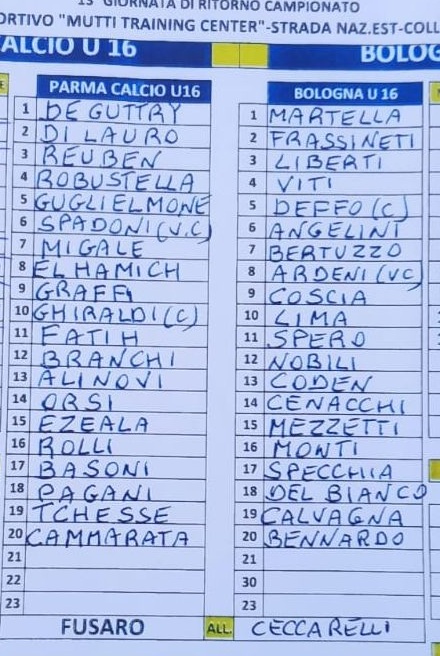 13° GIORNATA DI RITORNO CAMPIONATO
ORTIVO "MUTTI TRAINING CENTER"-STRADA NAZ.EST-COLL
ALCIO U 16 BOLOG
PARMA CALCIO U16 BOLOGNA U 16
1 DE GUTTRY 1 MARTELLA
2 DI LAURO 2 FRASSINETI
3 REUBEN 3 LIBERTI
4 ROBUSTELLA 4 VITI
5 GUGLIELMONE 5 DEFFO (C)
6 SPADONI (V.C) 6 ANGELINI
7 MIGALE 7 BERTUZZO
8 EL HAMICH 8 ARDENI (VC)
9 GRAFFI 9 COSCIA
10 GHIRALDI (C) 10 LIMA
11 FATIH 11 SPERO
12 BRANCHI 12 NOBILI
13 ALINOVI 13 CODEN
14 ORSI 14 CENACCHI
15 EZEALA 15 MEZZETTI
16 ROLLI 16 MONTI
17 BASONI 17 SPECCHIA
18 PAGANI 18 DEL BIANCO
19 TCHESSE 19 CALVAGNA
20 CAMMARATA 20 BENNARDO
21 21
22 30
23 23
FUSARO ALL. CECCARELLI